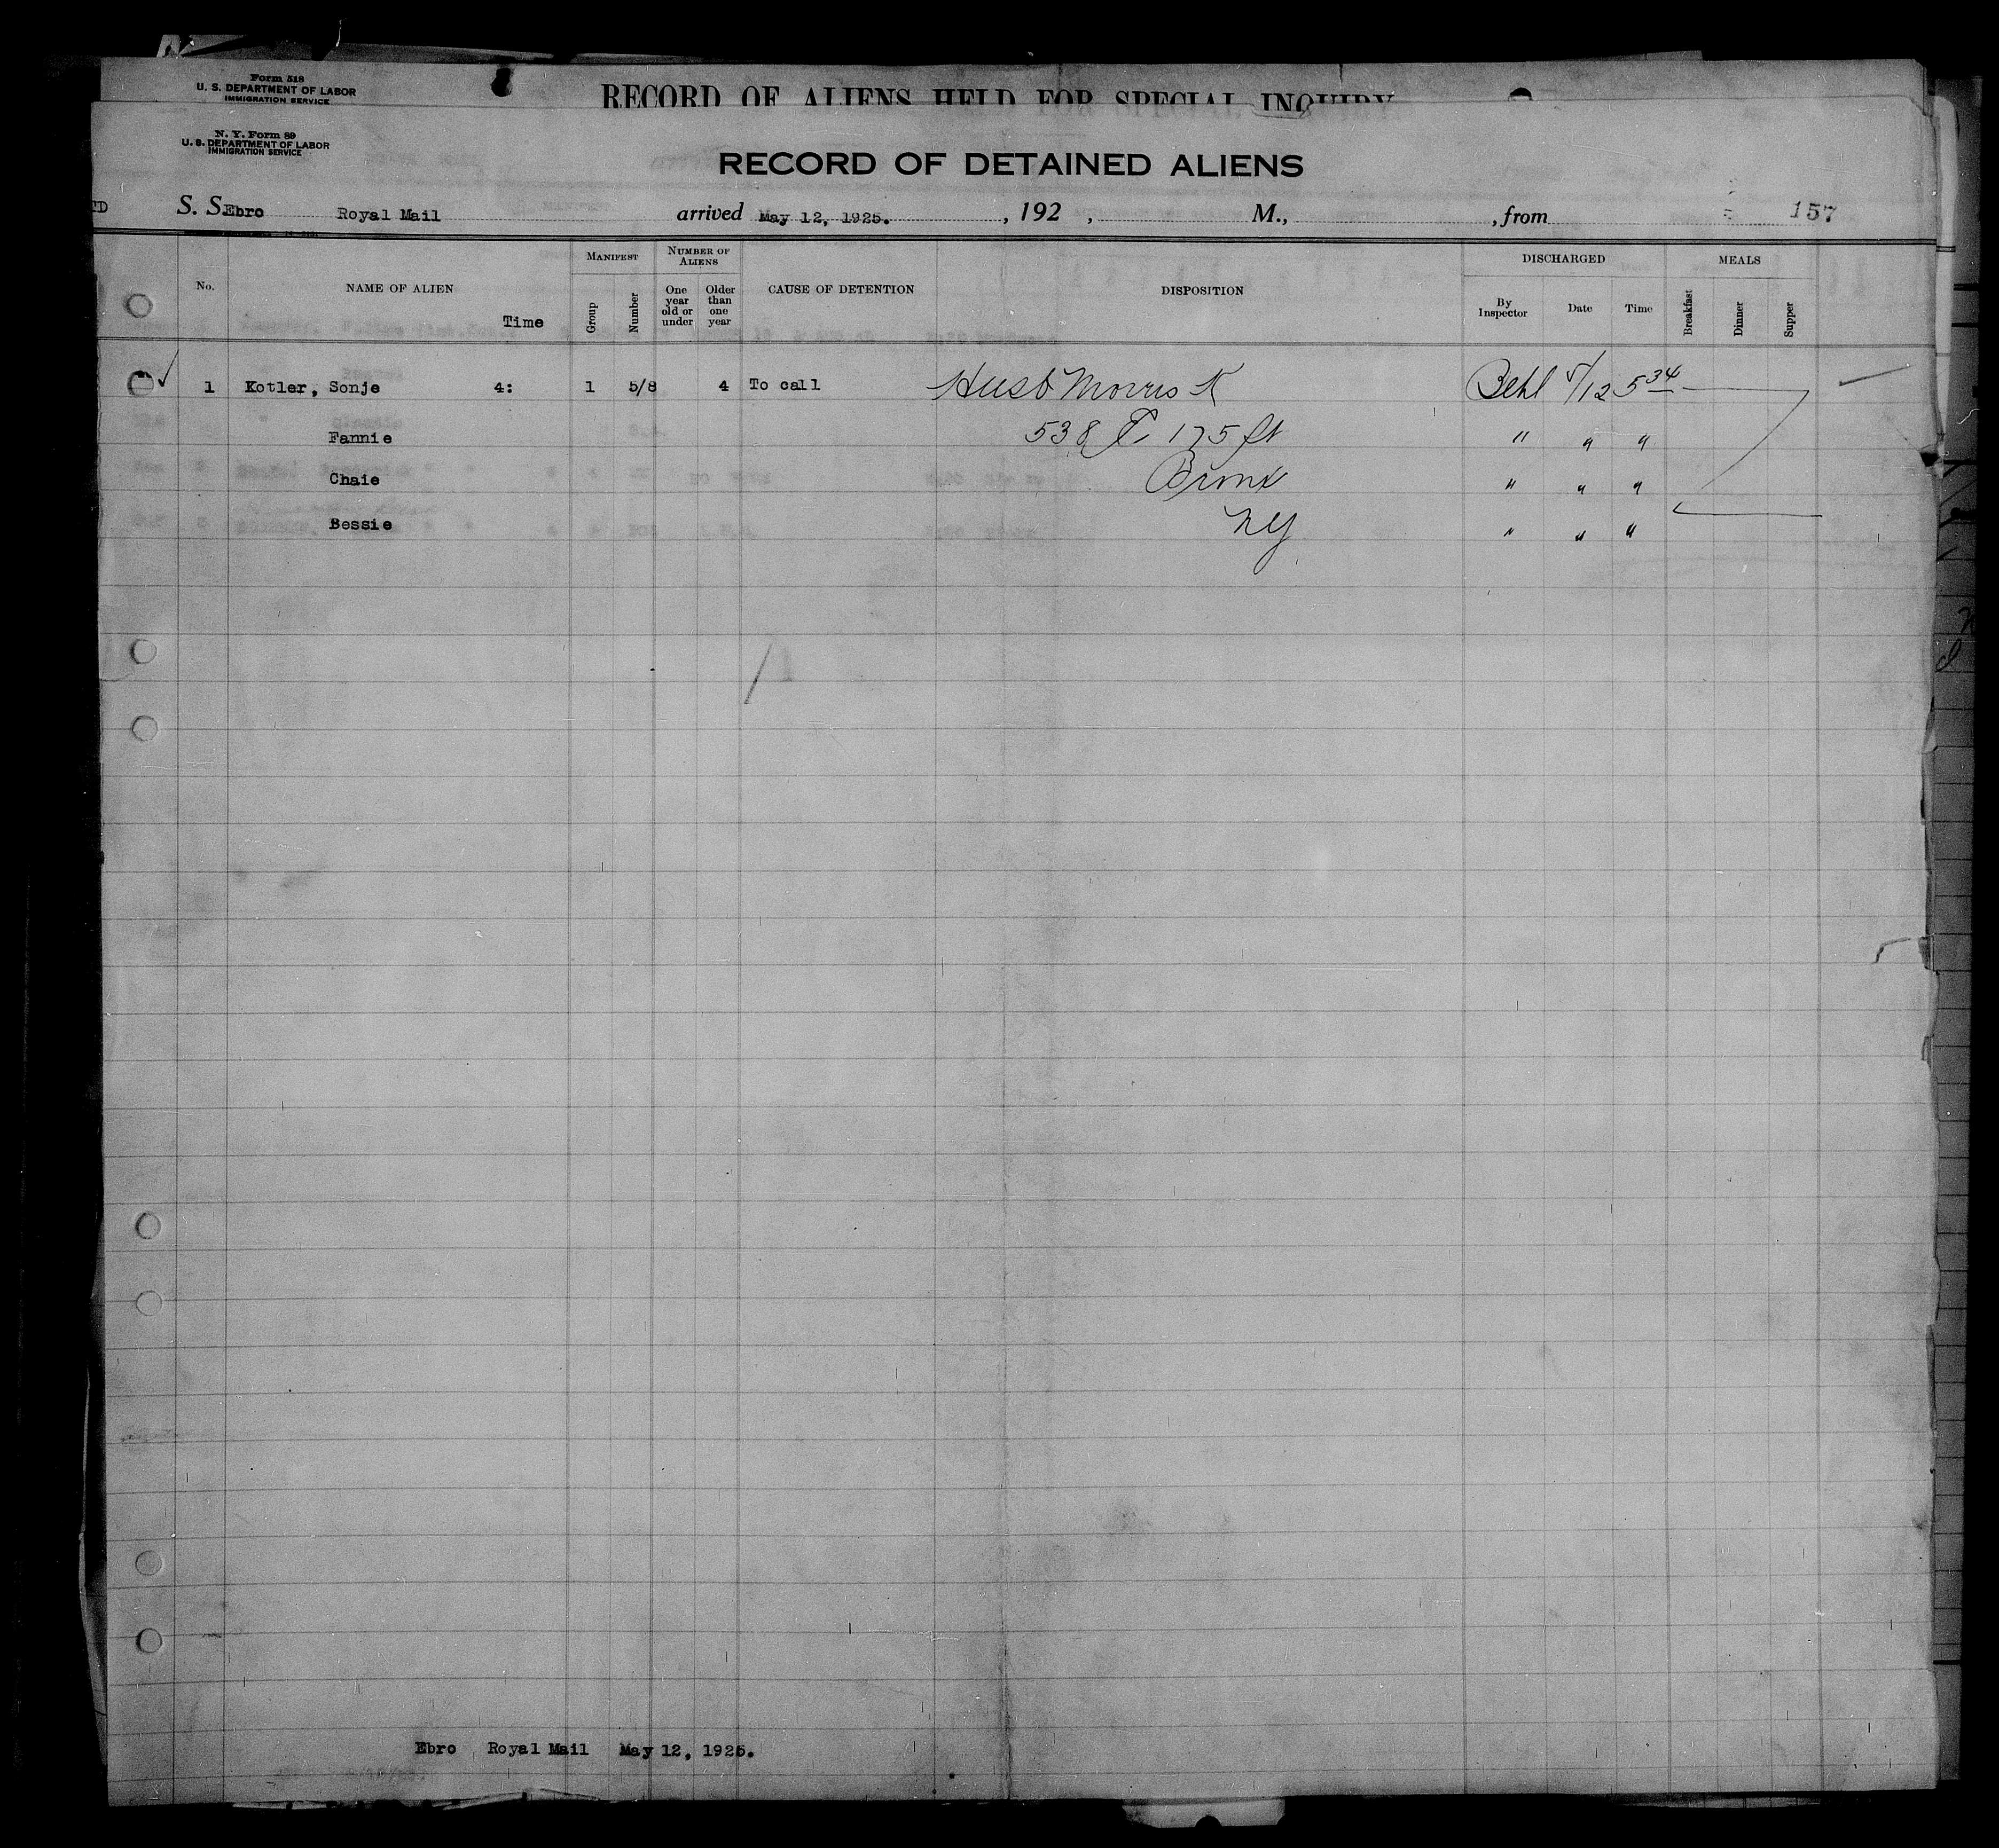 Form 518
U. S. DEPARTMENT OF LABOR
IMMIGRATION SERVICE
RECORD OF ALIENS HELD FOR SPECIAL INQUIRY
N. Y. Form 89
U. S. DEPARTMENT OF LABOR
IMMIGRATION SERVICE
RECORD OF DETAINED ALIENS
S. S. Ebro Royal Mail arrived May 12, 1925. , 192 , M., , from 157
No. NAME OF ALIEN Time MANIFEST Group Number NUMBER OF ALIENS One year old or under Older than one year CAUSE OF DETENTION DISPOSITION DISCHARGED By Inspector Date Time MEALS Breakfast Dinner Supper
1 Kotler, Sonje 4: 1 5/8 4 To call Husb Morris K 5/12 5 34
Fannie 538 E 175 St " " "
Chaie Bronx " " "
Bessie NY " " "
Ebro Royal Mail May 12, 1925.